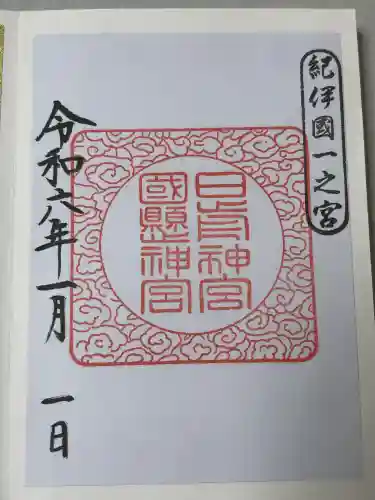 紀伊國一之宮
日前神宮
國懸神宮
令和六年一月一日